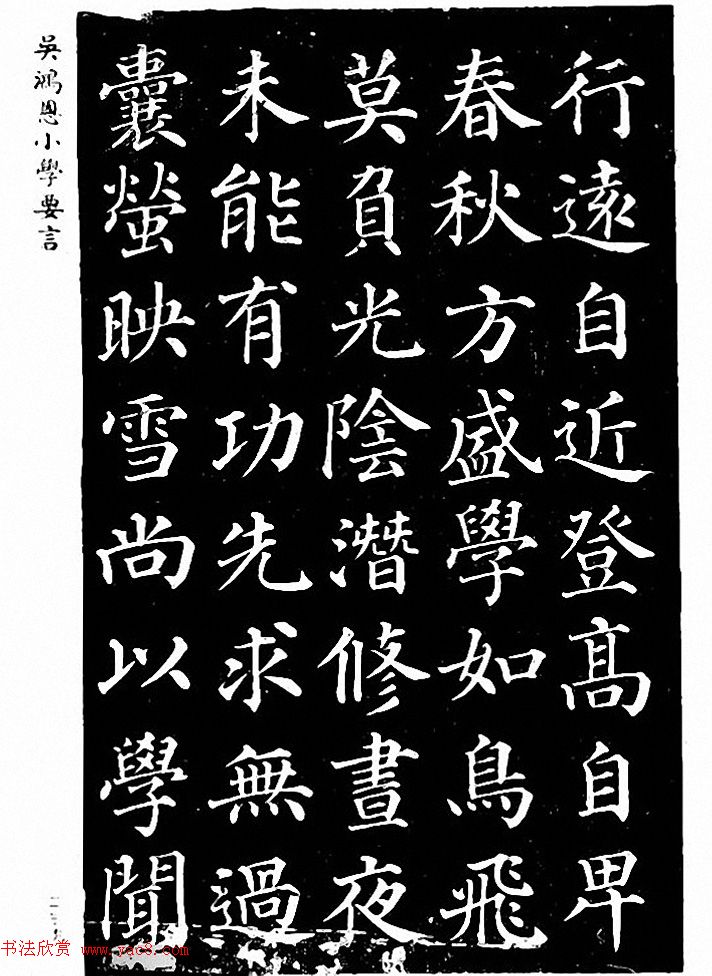 行遠自近登高自卑
春秋方盛學如鳥飛
莫負光陰潛修晝夜
未能有功先求無過
囊螢映雪尚以學聞
吳鴻恩小學要言
书法欣赏 www.yac8.com